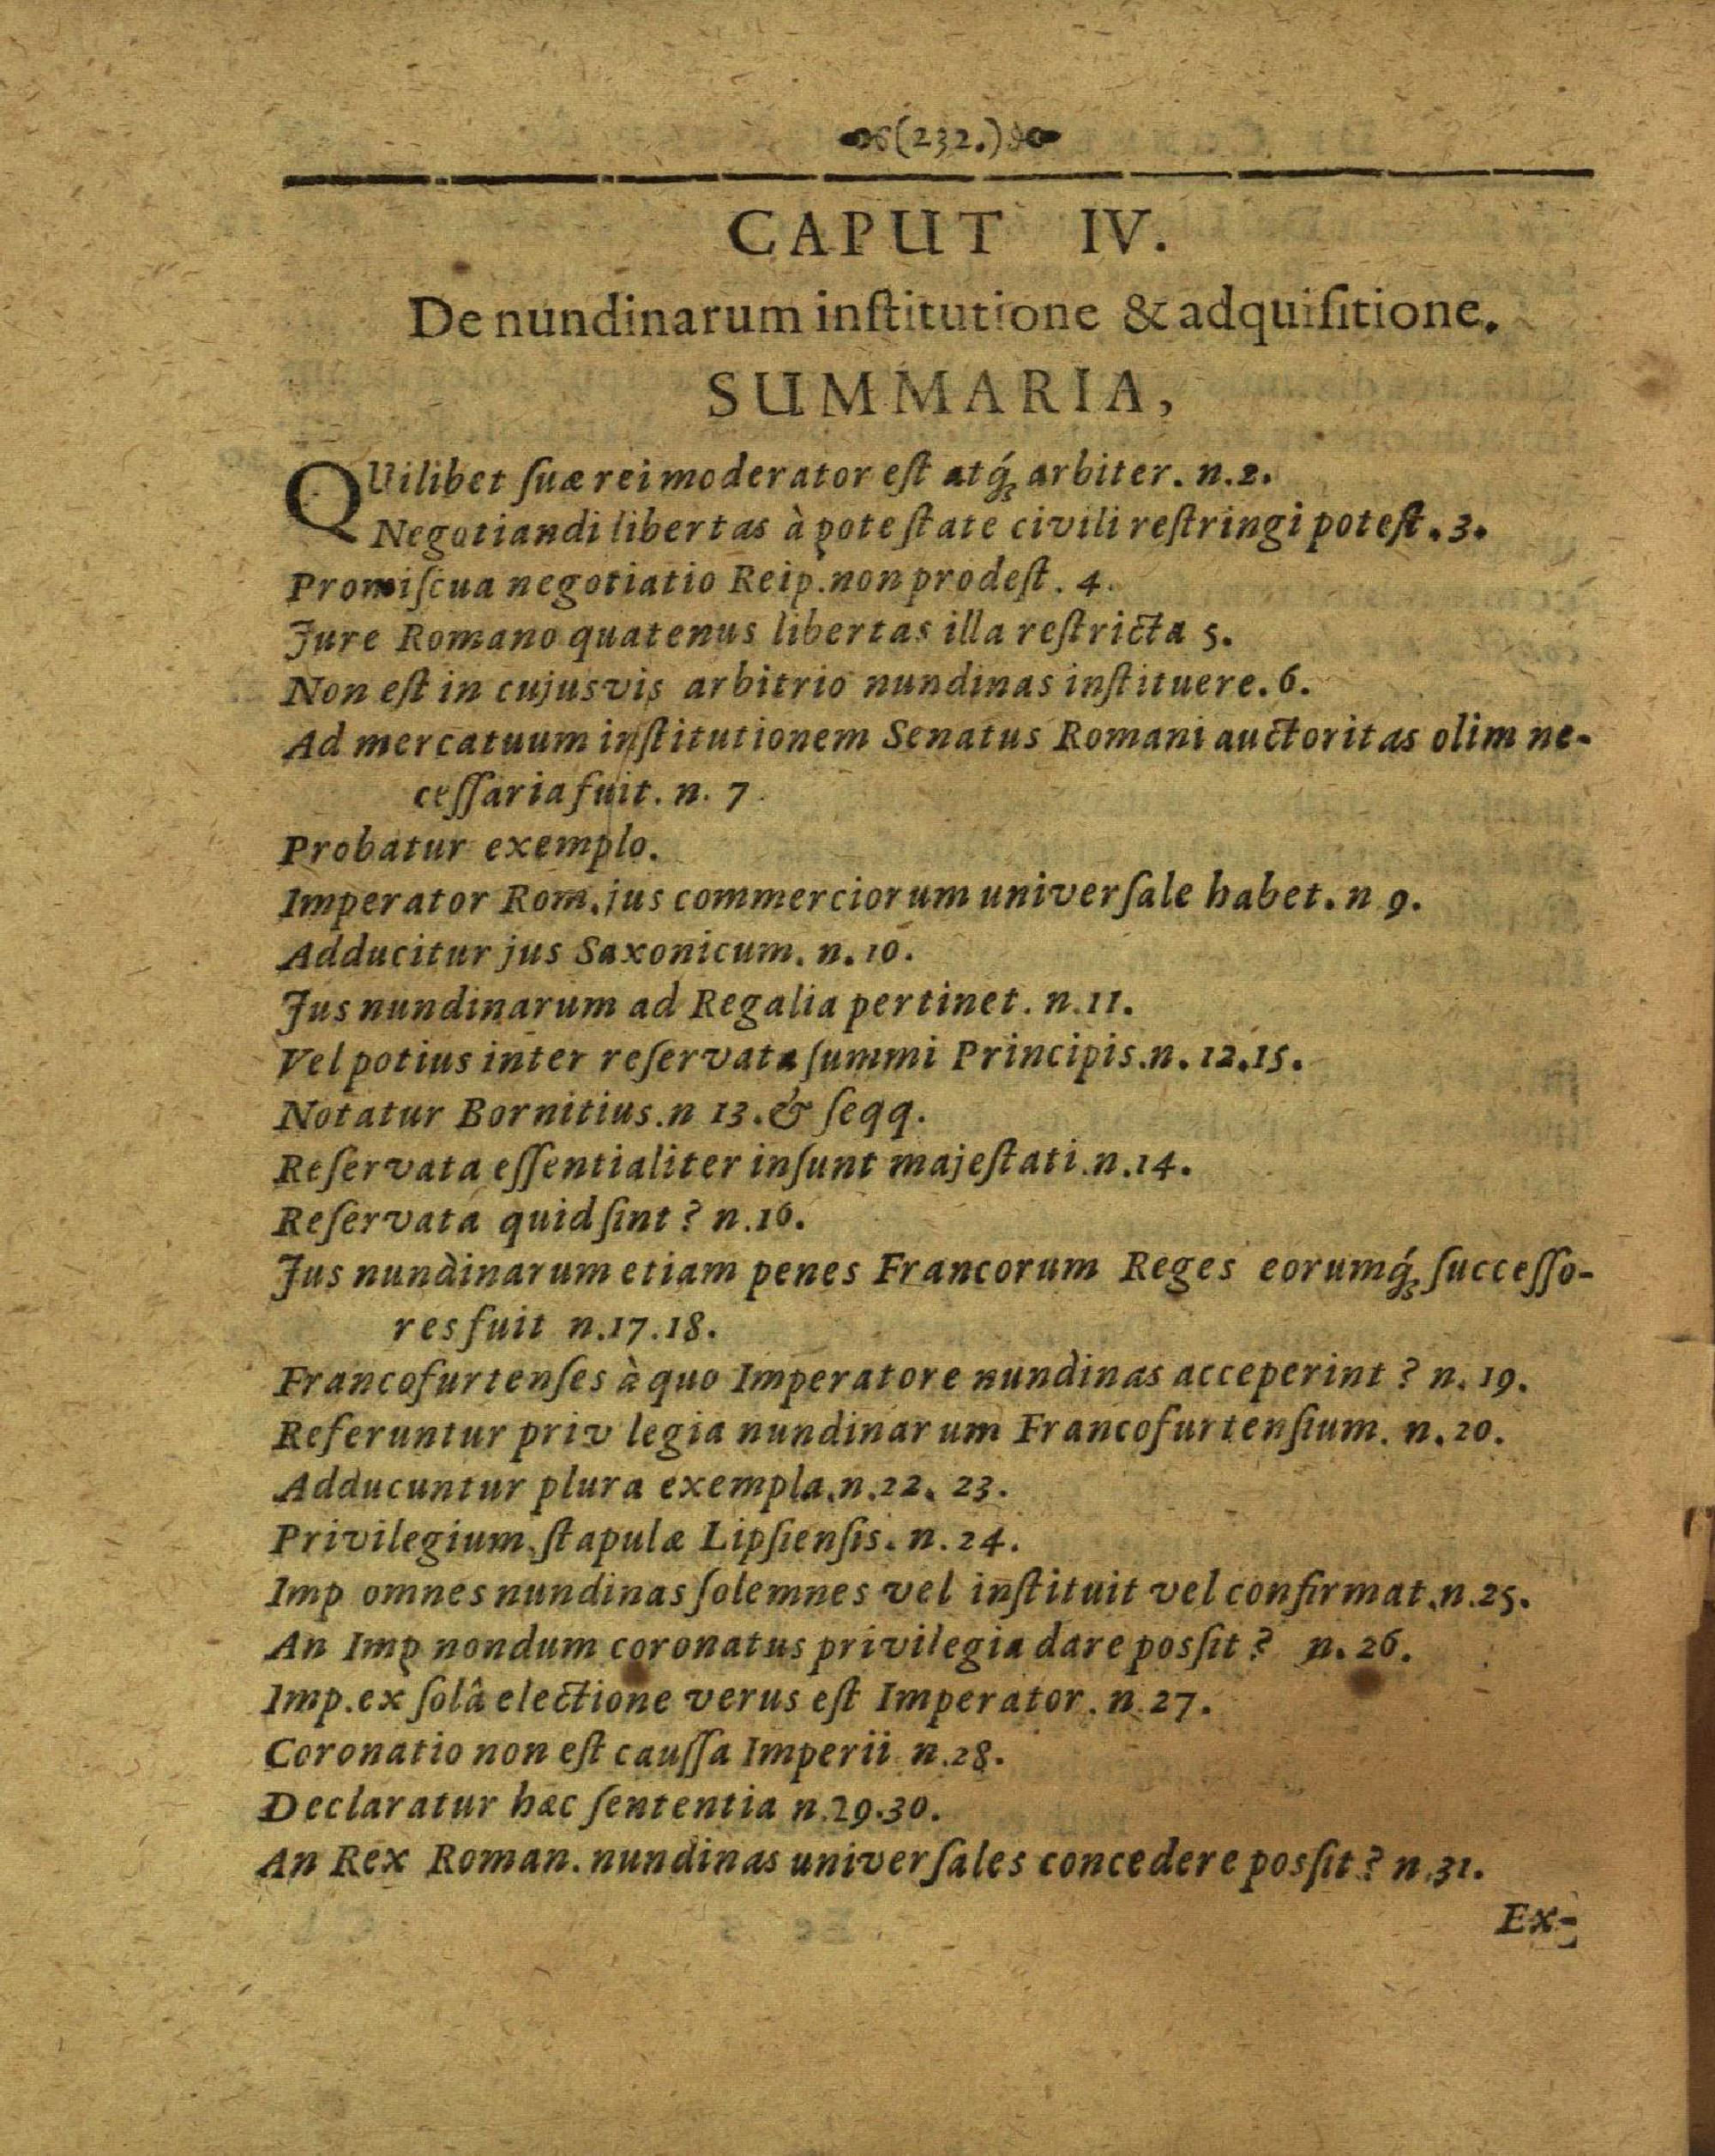 (232.)
CAPUT IV.
De nundinarum inſtitutione & adquiſitione.
SUMMARIA,
QUilibet ſuæ rei moderator eſt atq́; arbiter. n.2.
Negotiandi libertas à poteſtate civili reſtringi poteſt. 3.
Promiſcua negotiatio Reip. non prodeſt. 4.
Jure Romano quatenus libertas illa reſtricta 5.
Non eſt in cujusvis arbitrio nundinas inſtituere. 6.
Ad mercatuum inſtitutionem Senatus Romani auctoritas olim ne-
ceſſaria fuit. n. 7.
Probatur exemplo.
Imperator Rom. jus commerciorum univerſale habet. n 9.
Adducitur jus Saxonicum. n. 10.
Jus nundinarum ad Regalia pertinet. n. 11.
Vel potius inter reſervata ſummi Principis. n. 12. 15.
Notatur Bornitius. n 13. & ſeqq.
Reſervata eſſentialiter inſunt majeſtati. n. 14.
Reſervata quid ſint? n. 16.
Jus nundinarum etiam penes Francorum Reges eorumq́; ſucceſſo-
res fuit n. 17. 18.
Francofurtenſes à quo Imperatore nundinas acceperint? n. 19.
Referuntur priv legia nundinarum Francofurtenſium. n. 20.
Adducuntur plura exempla. n. 22. 23.
Privilegium ſtapulæ Lipſienſis. n. 24.
Imp omnes nundinas ſolemnes vel inſtituit vel confirmat. n. 25.
An Imp nondum coronatus privilegia dare posſit? n. 26.
Imp. ex ſolâ electione verus eſt Imperator. n. 27.
Coronatio non eſt cauſſa Imperii n. 28.
Declaratur hæc ſententia n. 29. 30.
An Rex Roman. nundinas univerſales concedere posſit? n. 31.
Ex-